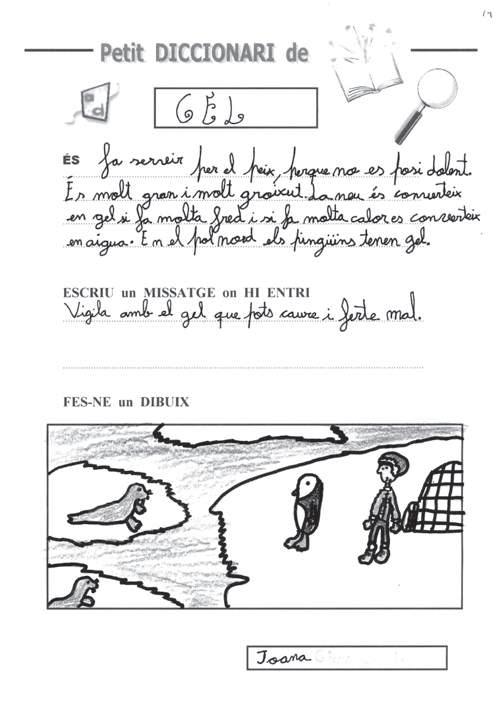 19
Petit DICCIONARI de
a
d
GEL
ÉS fa serveir per el peix, perque no es posi dolent.
És molt gran i molt groixut. La neu és converteix
en gel si fa molta fred i si fa molta calor es converteix
en aigua. En el pol nord els pingüins tenen gel.
ESCRIU un MISSATGE on HI ENTRI
Vigila amb el gel que pots caure i ferte mal.
FES-NE un DIBUIX
Joana